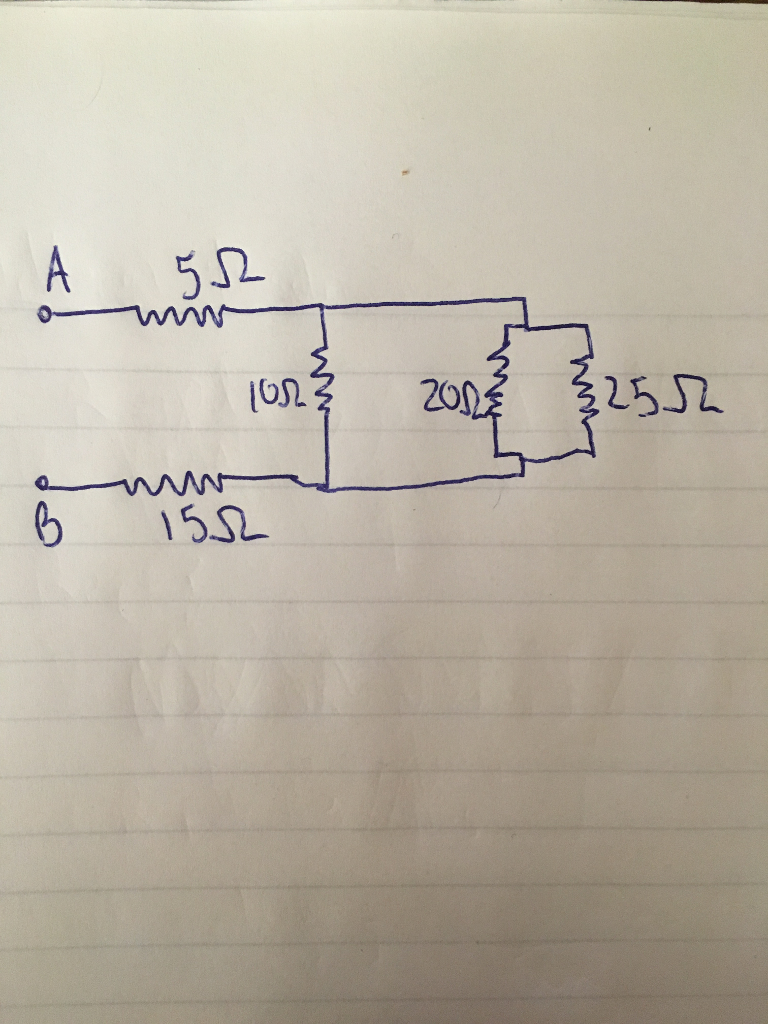 A
5Ω
10Ω
20Ω
25Ω
B
15Ω